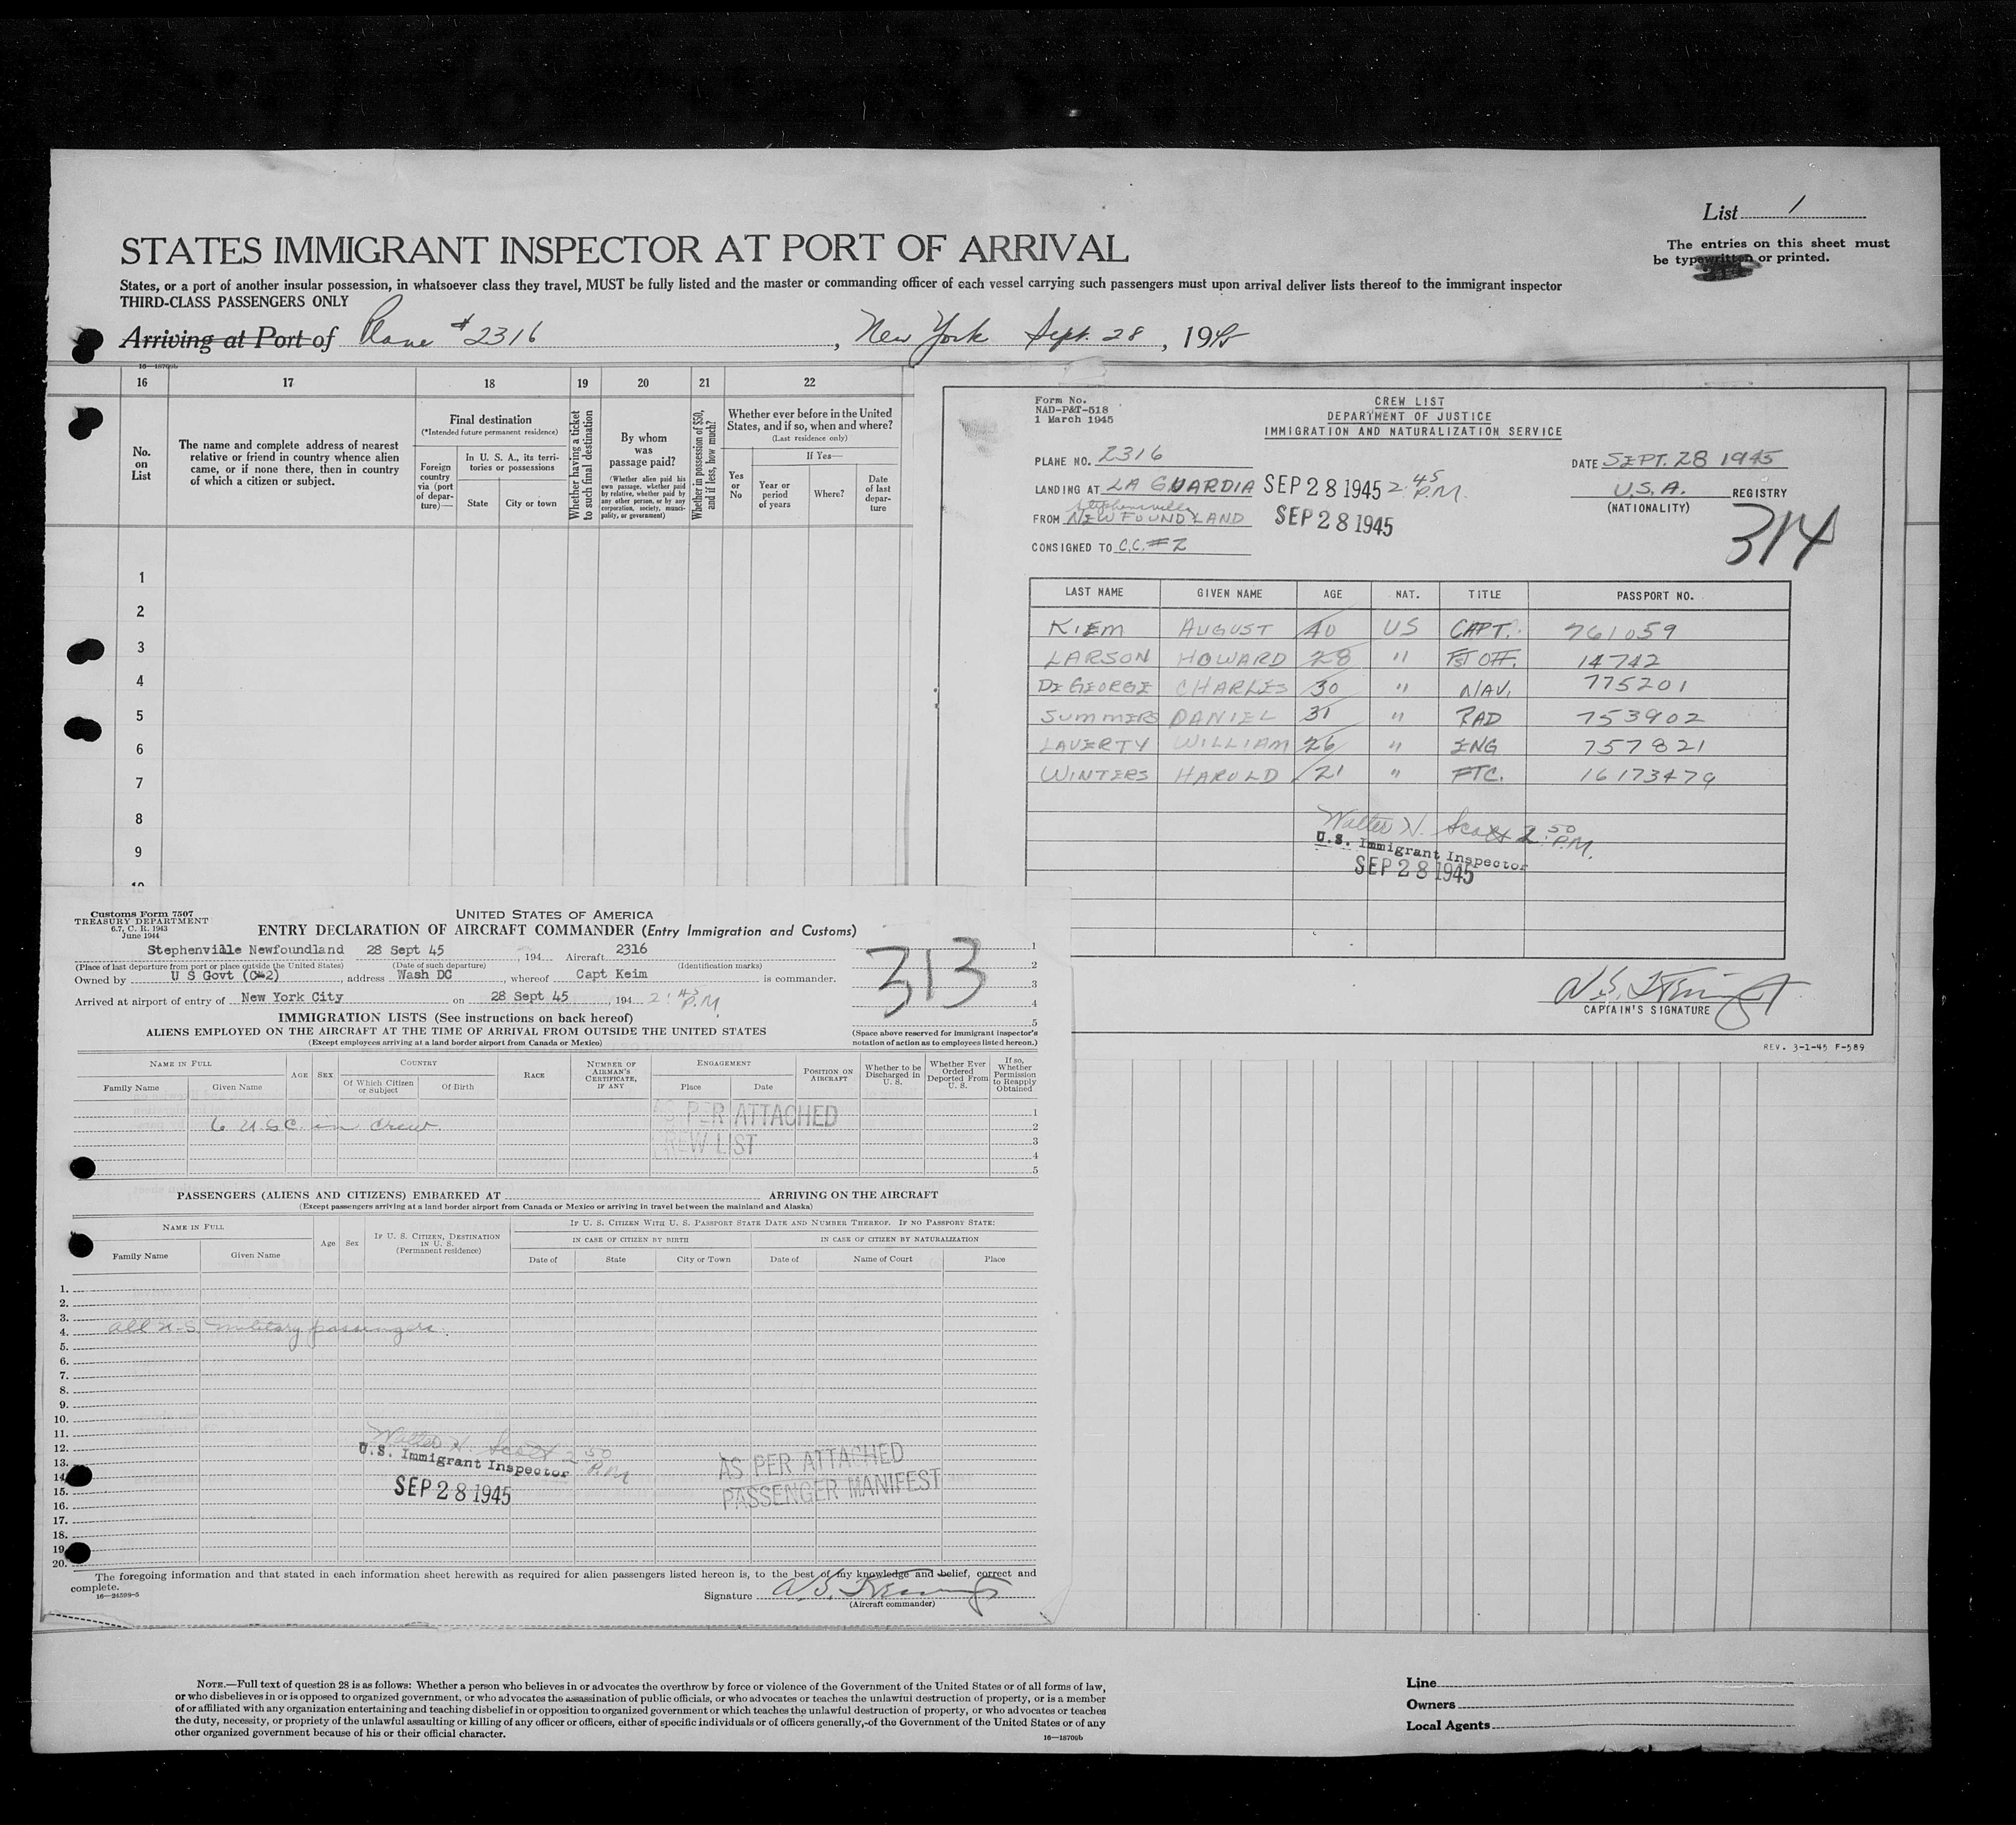 List 1
The entries on this sheet must
be typewritten or printed.
STATES IMMIGRANT INSPECTOR AT PORT OF ARRIVAL
States, or a port of another insular possession, in whatsoever class they travel, MUST be fully listed and the master or commanding officer of each vessel carrying such passengers must upon arrival deliver lists thereof to the immigrant inspector
THIRD-CLASS PASSENGERS ONLY
Arriving at Port of Plane #2316, New York Sept. 28, 1945
16—18709b
16 17 18 19 20 21 22
No. on List
The name and complete address of nearest
relative or friend in country whence alien
came, or if none there, then in country
of which a citizen or subject.
Final destination
(*Intended future permanent residence)
Foreign country via (port of departure)—
In U. S. A., its territories or possessions
State
City or town
Whether having a ticket to such final destination
By whom was passage paid?
(Whether alien paid his own passage, whether paid by relative, whether paid by any other person, or by any corporation, society, municipality, or government)
Whether in possession of $50, and if less, how much?
Whether ever before in the United
States, and if so, when and where?
(Last residence only)
Yes or No
If Yes—
Year or period of years
Where?
Date of last departure
1
2
3
4
5
6
7
8
9
10
Form No.
NAD-P&T-518
1 March 1945
CREW LIST
DEPARTMENT OF JUSTICE
IMMIGRATION AND NATURALIZATION SERVICE
PLANE NO. 2316
DATE SEPT. 28 1945
LANDING AT LA GUARDIA SEP 28 1945 2:45 P.M.
U.S.A. REGISTRY
(NATIONALITY)
Stephenville
FROM NEWFOUNDLAND SEP 28 1945
314
CONSIGNED TO C.C.#2
LAST NAME GIVEN NAME AGE NAT. TITLE PASSPORT NO.
KIEM AUGUST 40 US CAPT. 761059
LARSON HOWARD 28 " FST OFF. 14742
DE GEORGE CHARLES 30 " NAV. 775201
SUMMERS DANIEL 31 " RAD 753902
LAVERTY WILLIAM 26 " ENG 757821
WINTERS HAROLD 21 " FTC. 16173479
Walter H. Scott 2:50 P.M.
U.S. Immigrant Inspector
SEP 28 1945
CAPTAIN'S SIGNATURE
REV. 3-1-45 F-589
Customs Form 7507
TREASURY DEPARTMENT
6.7, C. R. 1943
June 1944
UNITED STATES OF AMERICA
ENTRY DECLARATION OF AIRCRAFT COMMANDER (Entry Immigration and Customs)
Stephenville Newfoundland 28 Sept 45, 194 Aircraft 2316
(Place of last departure from port or place outside the United States) (Date of such departure) (Identification marks)
Owned by U S Govt (C-2), address Wash DC, whereof Capt Keim is commander.
Arrived at airport of entry of New York City on 28 Sept 45 194 2:45 P.M
313
1
2
3
4
5
IMMIGRATION LISTS (See instructions on back hereof)
ALIENS EMPLOYED ON THE AIRCRAFT AT THE TIME OF ARRIVAL FROM OUTSIDE THE UNITED STATES
(Except employees arriving at a land border airport from Canada or Mexico)
(Space above reserved for immigrant inspector's
notation of action as to employees listed hereon.)
NAME IN FULL
Family Name
Given Name
AGE
SEX
COUNTRY
Of Which Citizen or Subject
Of Birth
RACE
NUMBER OF AIRMAN'S CERTIFICATE, IF ANY
ENGAGEMENT
Place
Date
POSITION ON AIRCRAFT
Whether to be Discharged in U. S.
Whether Ever Ordered Deported From U. S.
If so, Whether Permission to Reapply Obtained
6 U.S.C. in crew
AS PER ATTACHED
CREW LIST
1
2
3
4
5
PASSENGERS (ALIENS AND CITIZENS) EMBARKED AT ARRIVING ON THE AIRCRAFT
(Except passengers arriving at a land border airport from Canada or Mexico or arriving in travel between the mainland and Alaska)
NAME IN FULL
Family Name
Given Name
Age
Sex
IF U. S. CITIZEN, DESTINATION IN U. S.
(Permanent residence)
IF U. S. CITIZEN WITH U. S. PASSPORT STATE DATE AND NUMBER THEREOF. IF NO PASSPORT STATE:
IN CASE OF CITIZEN BY BIRTH
IN CASE OF CITIZEN BY NATURALIZATION
Date of State City or Town Date of Name of Court Place
1.
2.
3.
4. all U.S. military passengers.
5.
6.
7.
8.
9.
10.
11.
12.
13.
14.
15.
16.
17.
18.
19.
20.
Walter H. Scott 2:50 P.M
U.S. Immigrant Inspector
SEP 28 1945
AS PER ATTACHED
PASSENGER MANIFEST
The foregoing information and that stated in each information sheet herewith as required for alien passengers listed hereon is, to the best of my knowledge and belief, correct and
complete.
16—24598-5
Signature
(Aircraft commander)
NOTE.—Full text of question 28 is as follows: Whether a person who believes in or advocates the overthrow by force or violence of the Government of the United States or of all forms of law,
or who disbelieves in or is opposed to organized government, or who advocates the assassination of public officials, or who advocates or teaches the unlawful destruction of property, or is a member
of or affiliated with any organization entertaining and teaching disbelief in or opposition to organized government or which teaches the unlawful destruction of property, or who advocates or teaches
the duty, necessity, or propriety of the unlawful assaulting or killing of any officer or officers, either of specific individuals or of officers generally, of the Government of the United States or of any
other organized government because of his or their official character.
16—18709b
Line
Owners
Local Agents